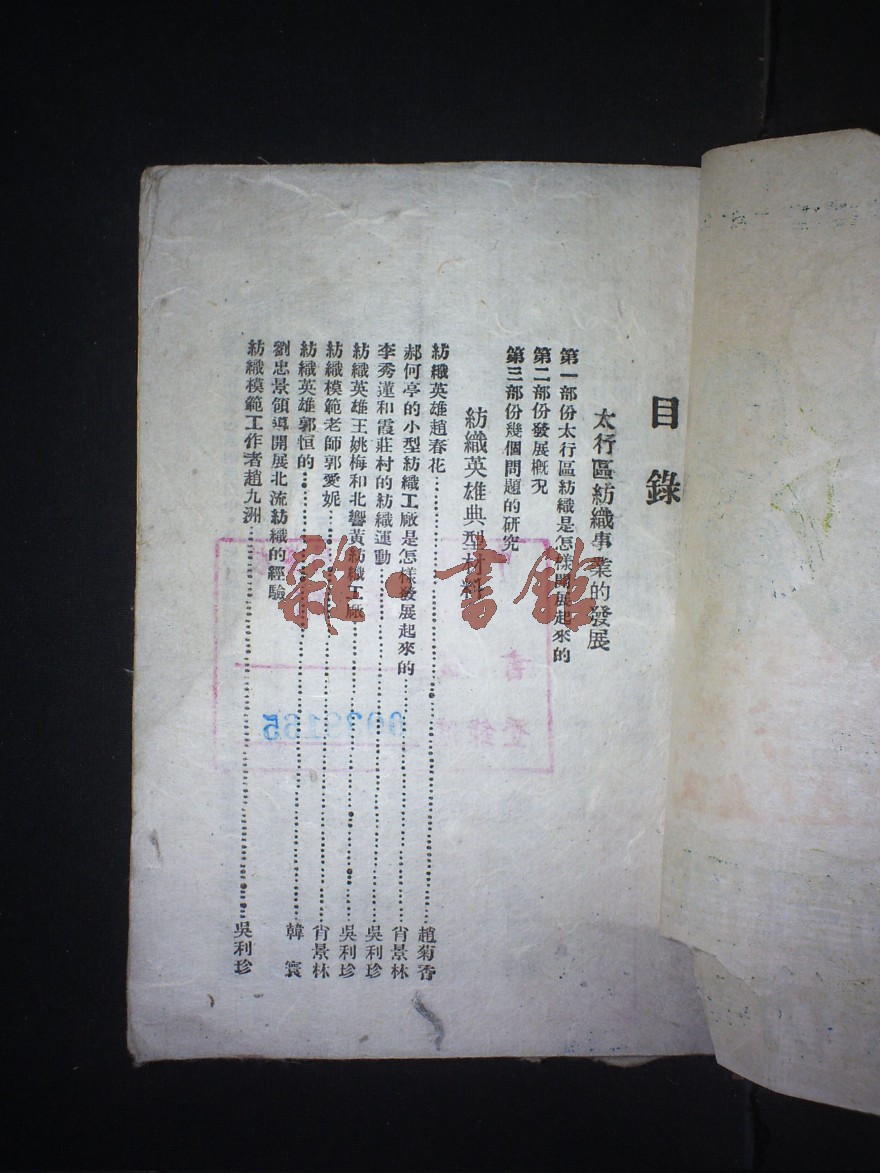 目錄
太行區紡織事業的發展
第一部份太行區紡織是怎樣開展起來的
第二部份發展概况
第三部份幾個問題的研究
紡織英雄典型材料
紡織英雄趙春花……趙菊香
郝何亭的小型紡織工廠是怎樣發展起來的……肖景林
李秀蓮和霞莊村的紡織運動……吳利珍
紡織英雄王姚梅和北響黃紡織工廠……吳利珍
紡織模範老師郭愛妮……肖景林
紡織英雄郭恒的……韓寰
劉忠景領導開展北流紡織的經驗
紡織模範工作者趙九洲……吳利珍
雜·書館